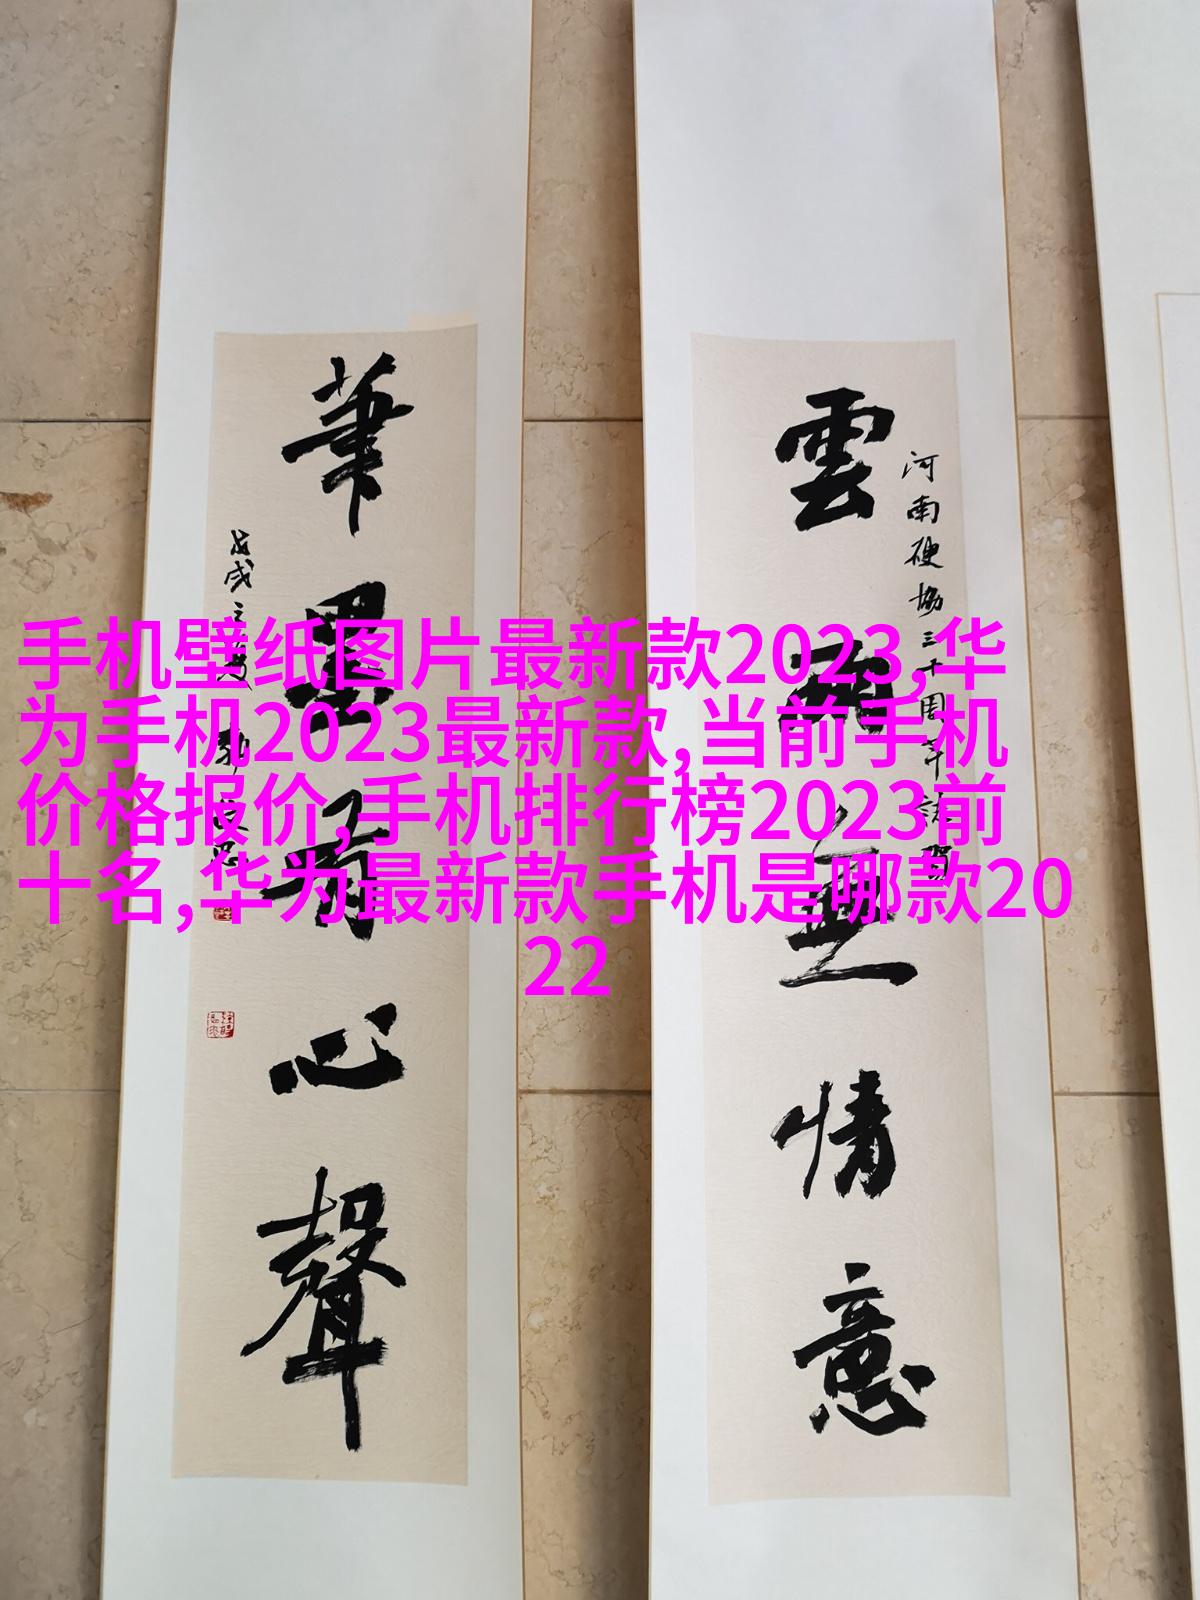 雲雨無情意
河南硬協三十周年誌賀
筆墨有心聲
戊戌之
手机壁纸图片最新款2023,华
为手机2023最新款,当前手机
价格报价,手机排行榜2023前
十名,华为最新款手机是哪款20
22